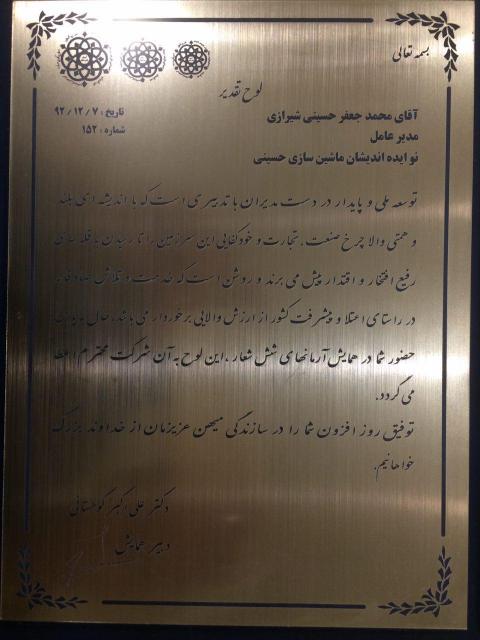 بسمه تعالی
لوح تقدیر
تاریخ : ۹۲/۱۲/۷
شماره : ۱۵۲
آقای محمد جعفر حسینی شیرازی
مدیر عامل
نو ایده اندیشان ماشین سازی حسینی
توسعه ملی و پایدار در دست مدیران با تدبیری است که با اندیشه ای بلند
و همتی والا چرخ صنعت، تجارت و خودکفایی این سرزمین را تا رسیدن به قله های
رفیع افتخار و اقتدار پیش می برند و روشن است که خدمت و تلاش صادقانه
در راستای اعتلا و پیشرفت کشور از ارزش والایی برخوردار می باشد، حال به پاس
حضور شما در همایش آرمانهای شش شعار، این لوح به آن شرکت محترم اعطا
می گردد.
توفیق روز افزون شما را در سازندگی میهن عزیزمان از خداوند بزرگ
خواهانیم.
دکتر علی اکبر
دبیر همایش